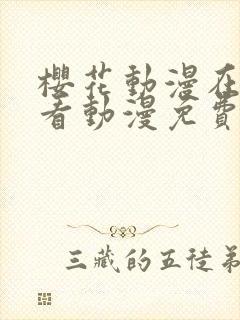 櫻花動漫在
看動漫免費
三藏的五徒弟